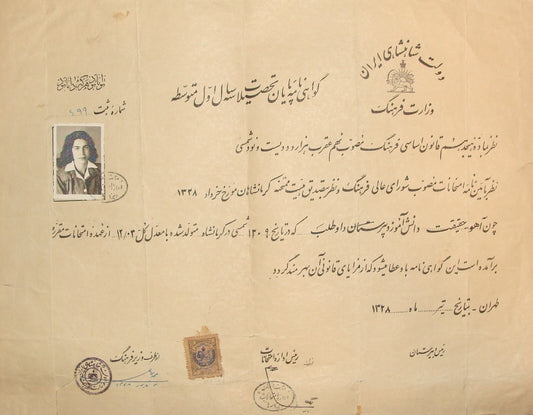 دولت شاهنشاهی ایران
وزارت فرهنگ
گواهی نامه پایان تحصیلات سه ساله اول متوسطه
شماره ثبت
نظر بماده نوزدهم قانون اساسی فرهنگ مصوب نهم عقرب هزار و دویست و نود شمسی
نظر بآئین نامه امتحانات مصوب شورای عالی فرهنگ و نظر بتصدیق هیئت ممتحنه کرمانشاهان مورخ خرداد ۱۳۲۸
چون آهو - حقیقت دانش آموز دبیرستان داوطلب که در تاریخ ۱۳۰۹ شمسی در کرمانشاه متولد شده با معدل کل ۱۲/۰۳ از عهده امتحانات مقرره
برآمده است این گواهی نامه باو عطا میشود که از مزایای قانونی آن بهره مند گردد
طهران - بتاریخ تیر ماه ۱۳۲۸
رئیس دبیرستان
رئیس اداره امتحانات
از طرف وزیر فرهنگ